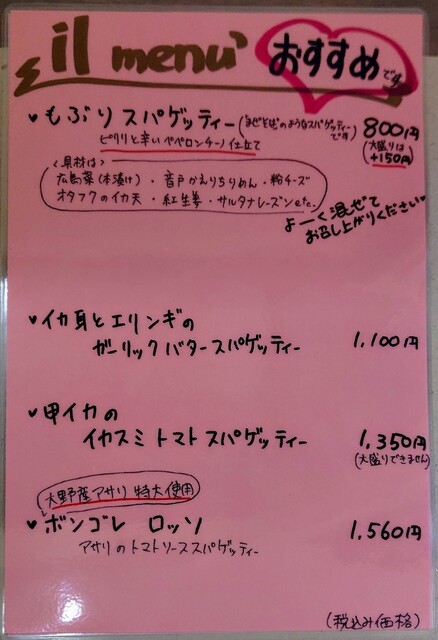 il menu
おすすめです
もぶりスパゲッティー(まぜそばのようなスパゲッティーです) 800円
ピリリと辛いペペロンチーノ仕立て
(大盛りは+150円)
<具材は>
広島菜(本漬け)・音戸かえりちりめん・粉チーズ
オタフクのイカ天・紅生姜・サルタナレーズンetc.
よーく混ぜて
お召し上がりください
イカ身とエリンギの
ガーリックバタースパゲッティー 1,100円
甲イカの
イカスミトマトスパゲッティー 1,350円
(大盛りできません)
大野産アサリ特大使用
ボンゴレ ロッソ 1,560円
アサリのトマトソーススパゲッティー
(税込み価格)